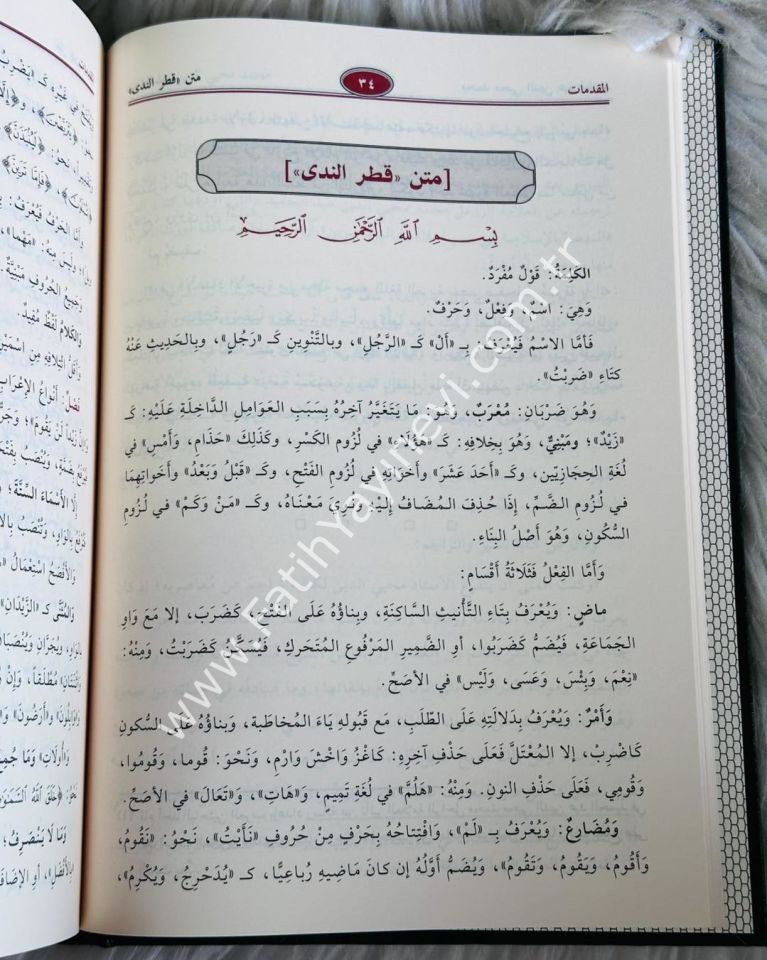 المقدمات
٣٤
متن «قطر الندى»
[متن «قطر الندى»]
بِسْمِ اللَّهِ الرَّحْمَٰنِ الرَّحِيمِ
الكَلِمَةُ: قَوْلٌ مُفْرَدٌ.
وَهِيَ: اسْمٌ، وَفِعْلٌ، وَحَرْفٌ.
فَأمَّا الاسْمُ فَيُعْرَفُ: بِـ «أَلْ» كَـ «الرَّجُلِ»، وبالتَّنْوِينِ كَـ «رَجُلٍ»، وبالحَدِيثِ عَنْهُ
كتَاءِ «ضَرَبْتُ».
وَهُوَ ضَرْبَانِ: مُعْرَبٌ، وَهُوَ: مَا يَتَغَيَّرُ آخِرُهُ بِسَبَبِ العَوَامِلِ الدَّاخِلَةِ عَلَيْهِ: كَـ
«زَيْدٌ»؛ ومَبْنِيٌّ، وَهُوَ بِخِلافِهِ: كَـ «هَؤُلَاءِ» في لُزُومِ الكَسْرِ، وكَذَلِكَ «حَذَامِ، وَأَمْسِ» في
لُغَةِ الحِجَازِيّين، وكَـ «أَحَدَ عَشَرَ» وأخَوَاتِهِ في لُزُومِ الفَتْحِ، وكَـ «قَبْلُ وَبَعْدُ» وأخَوَاتِهِمَا
في لُزُومِ الضَّمِّ، إذَا حُذِفَ المُضَافُ إلَيْهِ ونُوِيَ مَعْنَاهُ، وكَـ «مَنْ وَكَمْ» في لُزُومِ
السُّكُونِ، وَهُوَ أَصْلُ البِنَاءِ.
وَأمَّا الفِعْلُ فَثَلَاثَةُ أَقْسَامٍ:
ماضٍ: وَيُعْرَفُ بِتَاءِ التَّأنيثِ السَّاكِنَةِ، وبِنَاؤُهُ عَلَى الفَتْحِ، كَضَرَبَ، إلا مَعَ وَاوِ
الجَمَاعَةِ، فَيُضَمُّ كَضَرَبُوا، أو الضَّمِيرِ المَرْفُوعِ المُتَحَركِ، فَيُسَكَّنُ كَضَرَبْتُ، وَمِنْهُ:
«نِعْمَ، وَبِئْسَ، وَعَسَى، وَلَيْس» في الأصَحِّ.
وَأَمْرٌ: وَيُعْرَفُ بِدَلالَتِهِ عَلَى الطَّلَبِ، مَع قَبُولِهِ يَاءَ المُخَاطَبة، وَبِنَاؤُهُ عَلَى السُّكونِ
كَاضْرِبْ، إلا المُعْتَلَّ فَعَلَى حَذْفِ آخِرِهِ: كَاغْزُ وَاخْشَ وَارْمِ، وَنَحْوَ: قُوما، وَقُومُوا،
وَقُومِي، فَعَلى حَذْفِ النونِ. وَمِنْهُ: «هَلُمَّ» في لُغَةِ تَمِيمٍ، وَ«هَاتِ»، وَ«تَعَالَ» في الأصَحِّ.
وَمُضَارِعٌ: وَيُعْرَفُ بِـ «لَمْ»، وَافْتِتَاحُهُ بِحَرْفٍ مِنْ حُروفِ «نَأَيْتُ»، نَحْوُ: «نَقُومُ،
وَأَقُومُ، وَيَقُومُ، وَتَقُومُ»، وَيُضَمُّ أوَّلُهُ إن كانَ مَاضِيهِ رُباعِيًّا، كـ «يُدَحْرِجُ، وَيُكْرِمُ»،
www.FatihYayinevi.com.tr